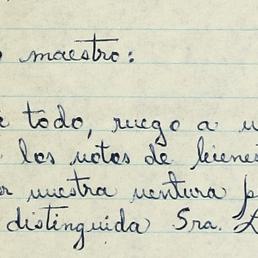 maestro:
todo, ruego a
los votos de
nuestra ventura
distinguida Sra.